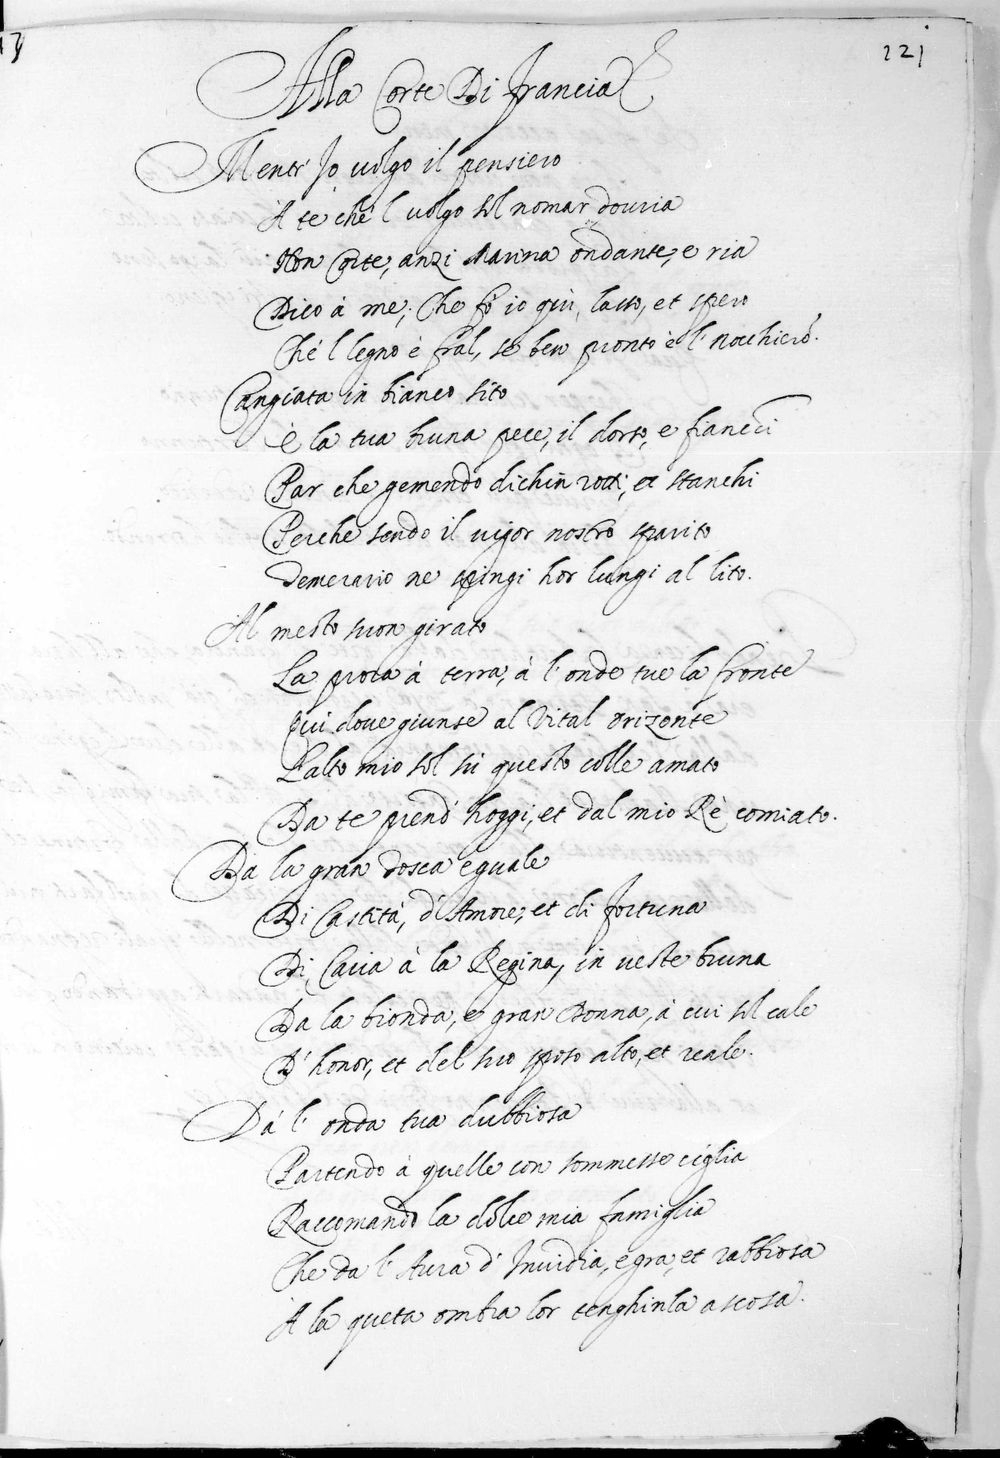 221
Alla Corte Di Francia
Mentr' Jo uolgo il pensiero
A te ché l uolgo sol nomar douria
Non Corte, anzi Marina ondante, e ria
Dico à me; Che fò io quì, lasso, et spero
Ché l legno è fral, se ben pronto è l' nocchiero.
Cangiata in bianco sito
È la tua bruna pece, il dorso, e fianchi
Par che gemendo dichin rotti, et stanchi
Perche sendo il uigor nostro sparito
Temerario ne spingi hor lungi al lito.
Al mesto suon girato
La prora à terra, à l' onde tue la fronte
Qui doue giunse al Vital orizonte
L'alto mio sol sù questo colle amato
Da te prend' hoggi, et dal mio Rè comiato.
Da la gran Tosca eguale
Di Castità, d' Amore, et di Fortuna
Di, Caria à la Regina, in ueste bruna
Da la bionda, e gran Donna, à cui sol cale
D' honor, et del suo sposo alto, et reale.
Da l' onda tua dubbiosa
Partendo à quelle con sommesse ciglia
Raccomando la dolce mia famiglia
Che da l' Aura d' Inuidia, egra, et rabbiosa
A la queta ombra lor tenghinla ascosa.